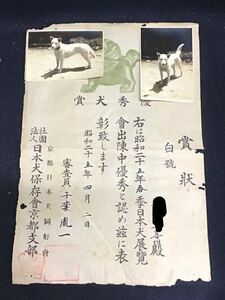 優秀犬賞
賞狀
白號
殿
右は昭和二十五年春季日本犬展覽
會出陳中優秀と認め茲に表
彰致します
昭和二十五年四月二日
審査員 千葉胤一
京都日本犬同好會
社團法人 日本犬保存會京都支部